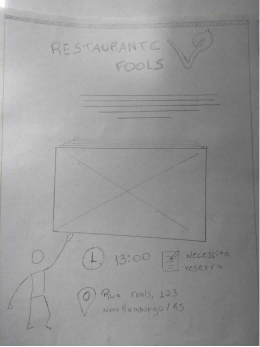 RESTAURANTE
FOOLS
13:00
Necessita
reserva
Rua Fools, 123
Novo Hamburgo/RS